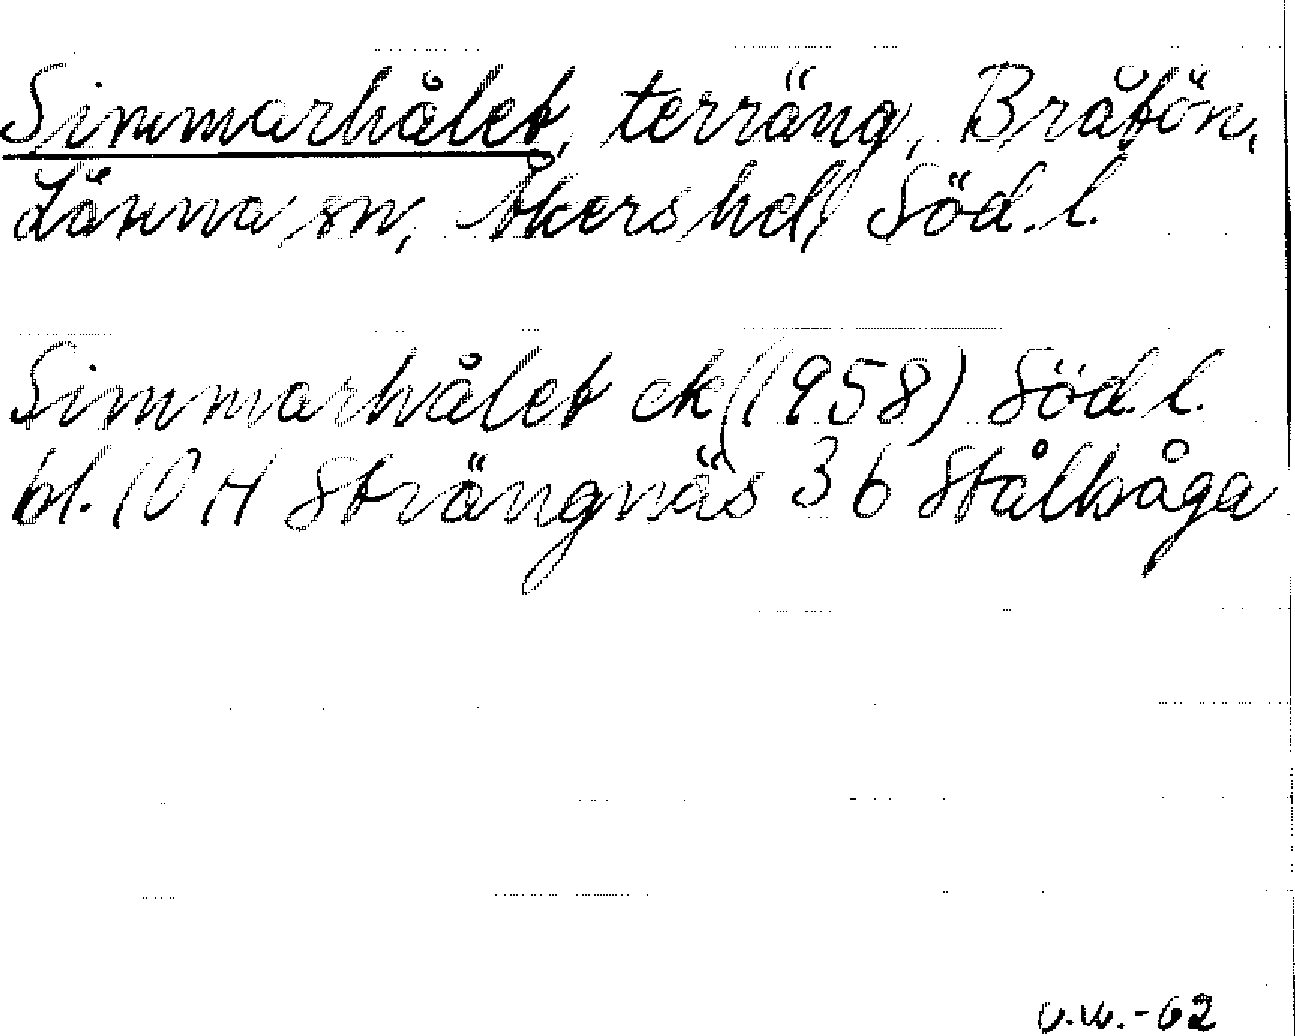 Simmarhålet, terräng, Bråtön,
Länna sn, Åkers hd, Söd. l.
Simmarhålet ek (1958) Söd. l.
bl. 10 H Strängnäs 3 b Stålbåga
v.w. -62